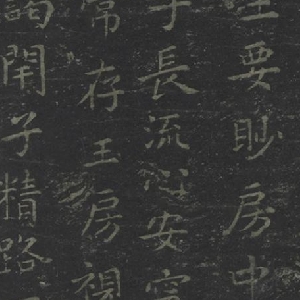 要眇房中
子長流心安寧
常存玉房視
謁閉子精路